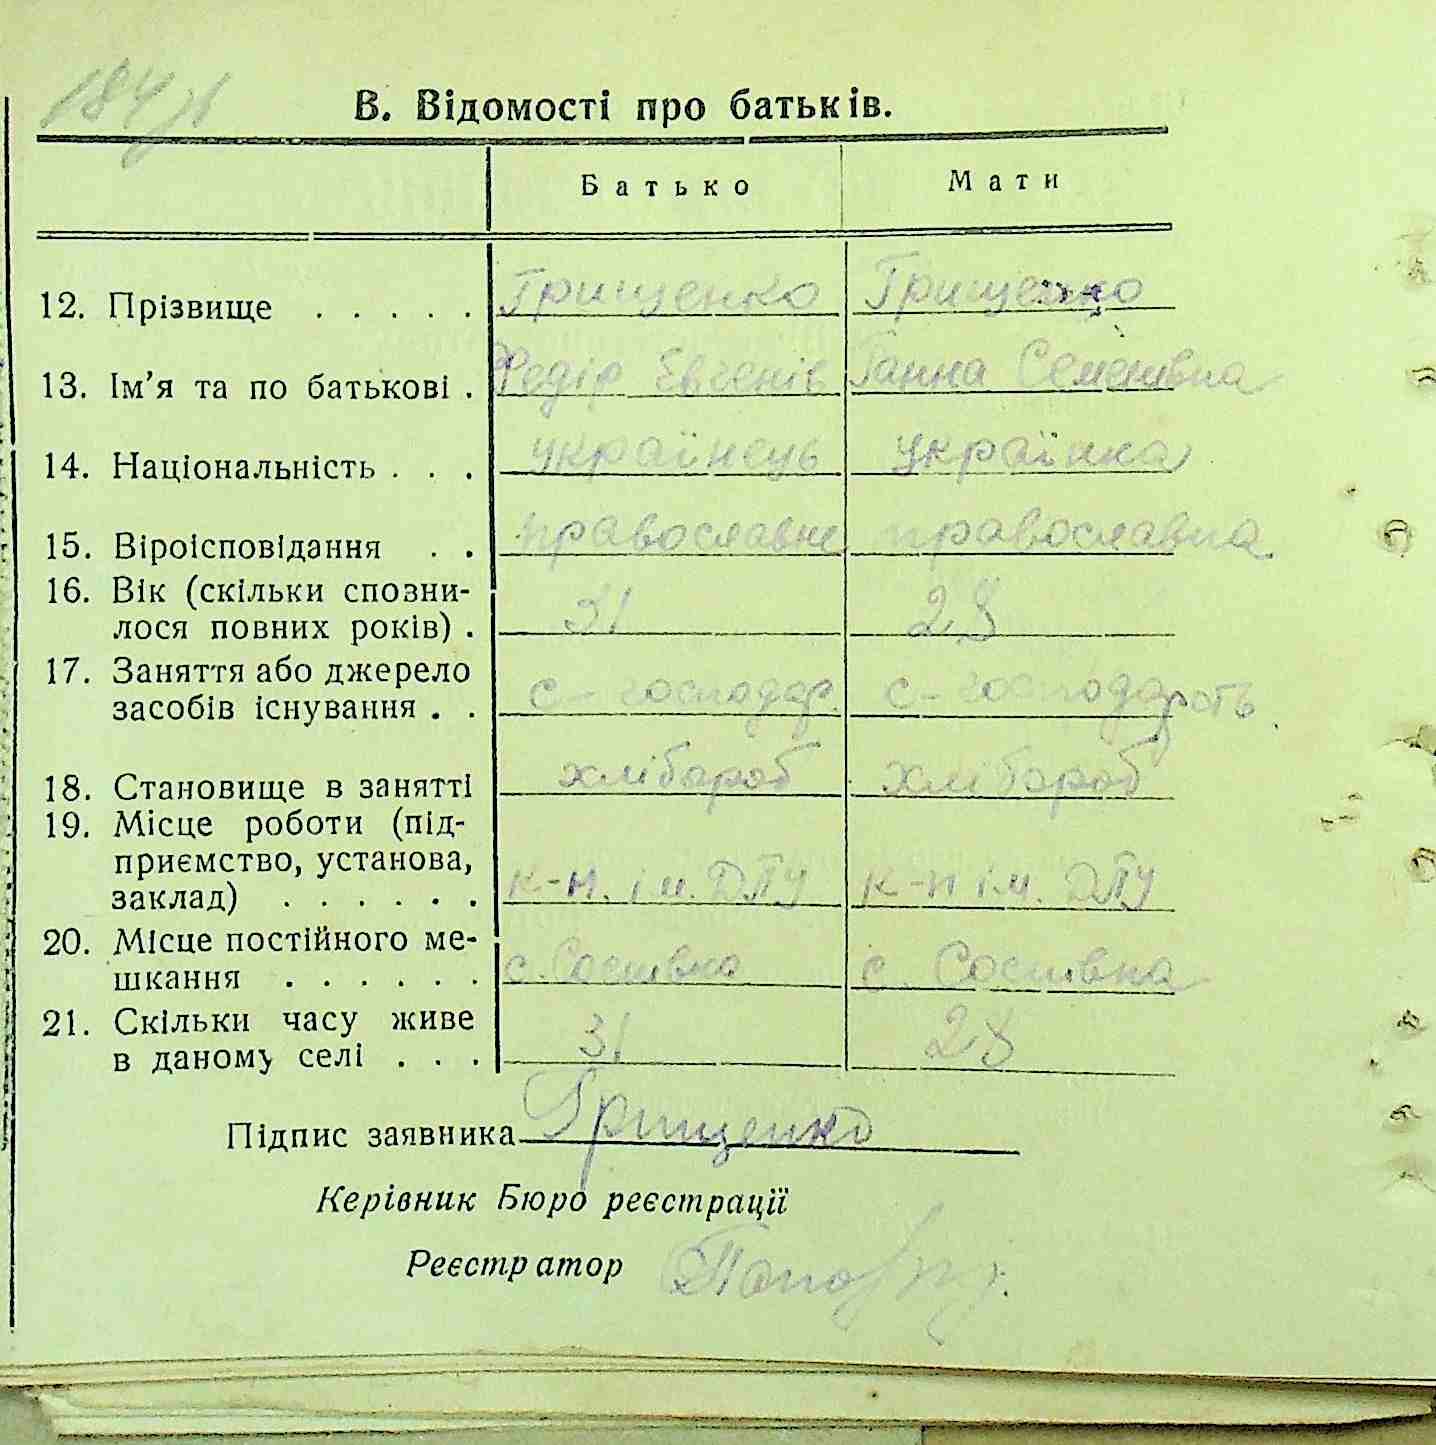 184
В. Відомості про батьків.
Батько Мати
12. Прізвище . . . . . Грищенко Грищенко
13. Ім'я та по батькові . Федір Евгенів Ганна Семенівна
14. Національність . . . українець українка
15. Віроісповідання . . православне православна
16. Вік (скільки спозни-
лося повних років) . 31 28
17. Заняття або джерело
засобів існування . . с-господар. с-господарств.
18. Становище в занятті хлібороб хлібороб
19. Місце роботи (під-
приємство, установа,
заклад) . . . . . . к-п. ім. ДПУ к-п ім. ДПУ
20. Місце постійного ме-
шкання . . . . . . с. Соснівка с. Соснівка
21. Скільки часу живе
в даному селі . . . 31 28
Підпис заявника Грищенко
Керівник Бюро реєстрації
Реєстратор